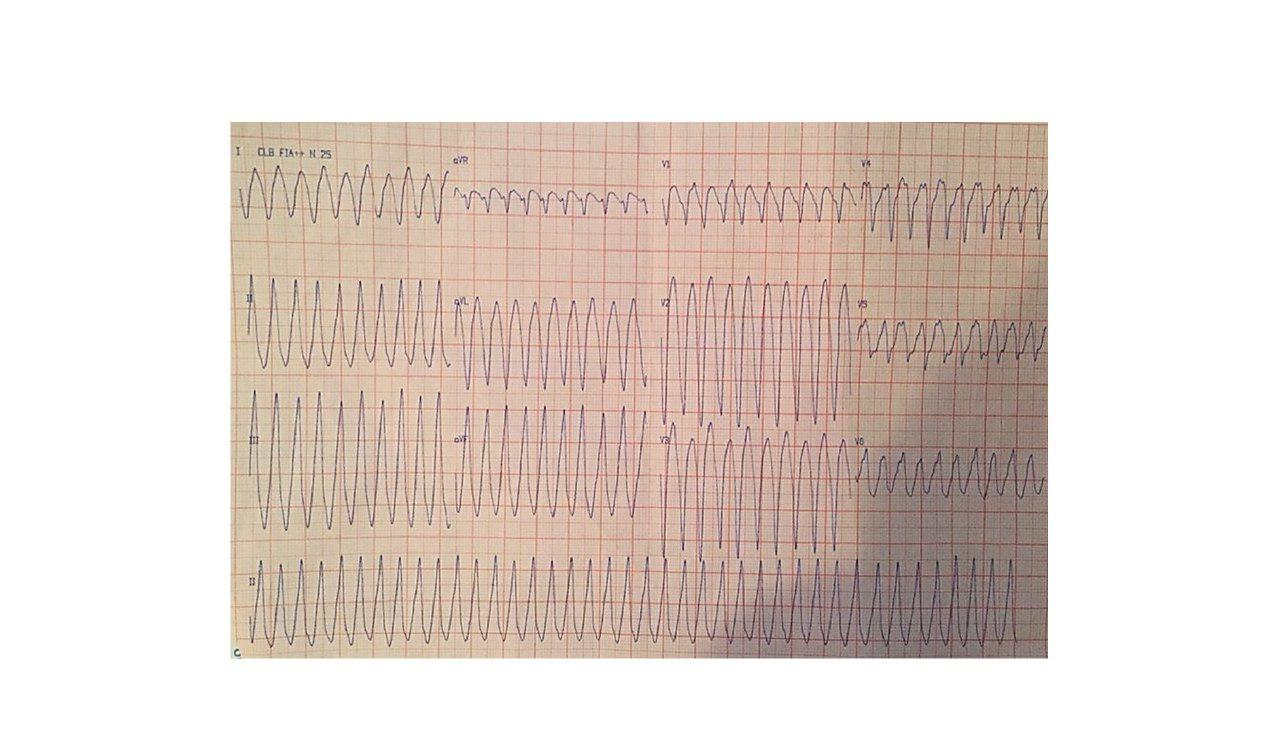 I CLB FIA++ N 25
aVR
V1
V4
II
aVL
V2
V5
III
aVF
V3
V6
II
C